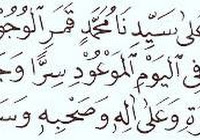 عَلَى سَيِّدِنَا مُحَمَّدٍ قَمَرِ الْوُجُو
فِي الْيَوْمِ الْمَوْعُودِ سِرًّا وَجَ
وَعَلَى اٰلِهٖ وَصَحْبِهٖ وَسَ